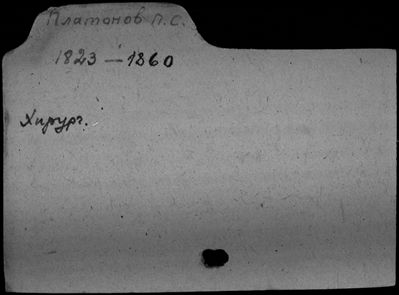 Платонов П.С.
1823 – 1860
Хирург.